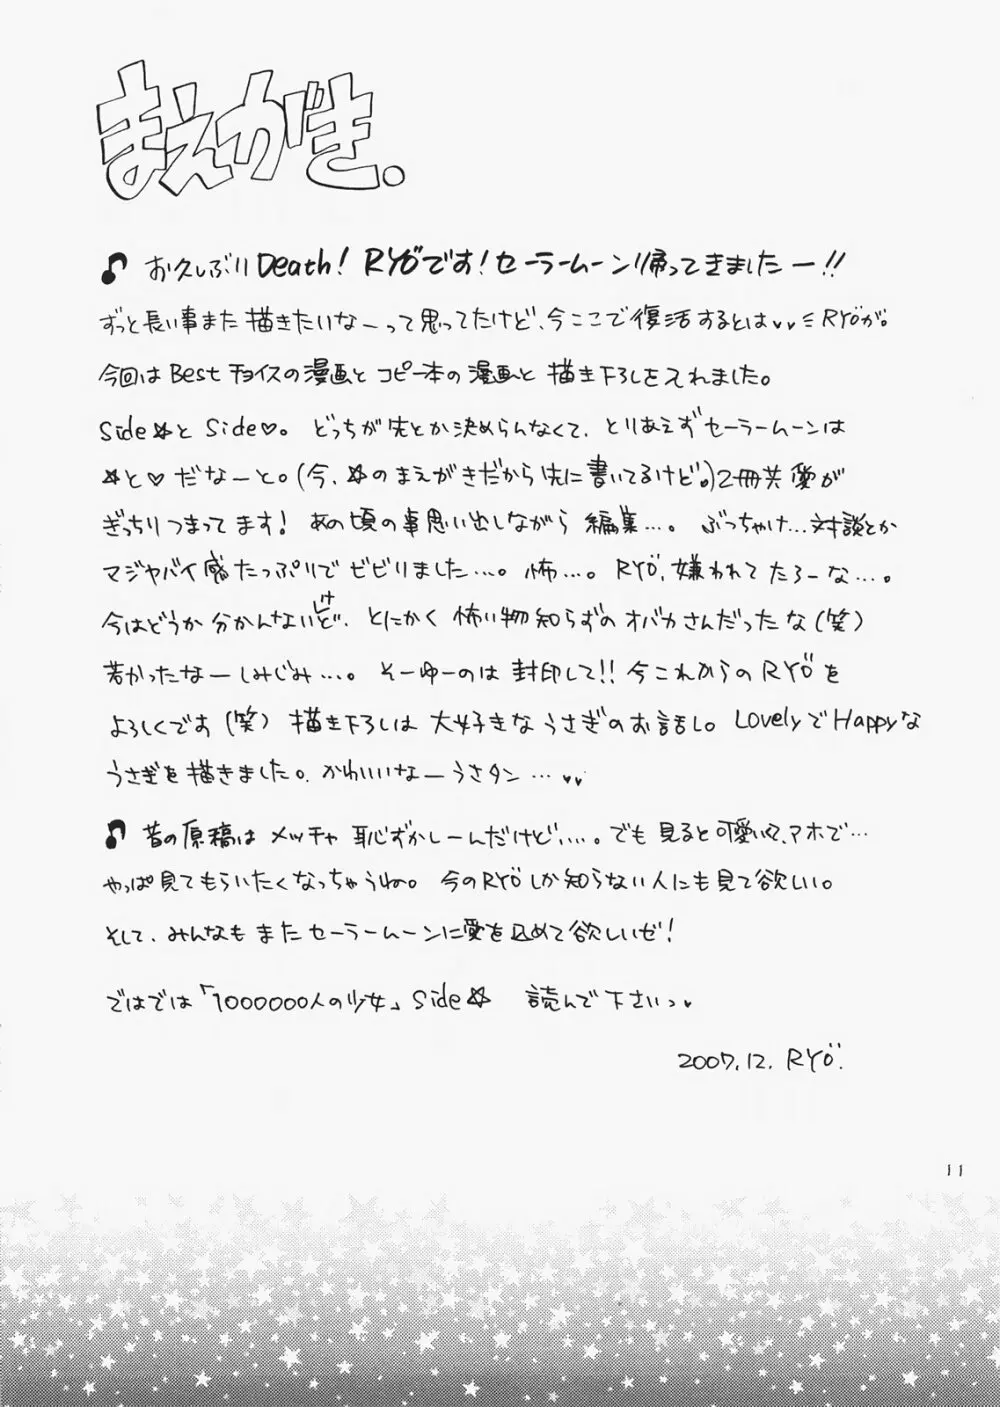 まえがき。
♪ お久しぶりDeath! RYÖです!セーラームーン帰ってきましたー!!
ずっと長い事また描きたいなーって思ってたけど、今ここで復活するとは♥♥ミRYÖが。
今回はBestチョイスの漫画とコピー本の漫画と描き下ろしを入れました。
Side☆とSide♡。どっちが先とか決めらんなくて、とりあえずセーラームーンは
☆と♡だなーと。(今、☆のまえがきだから先に書いてるけど。)2冊共愛が
ぎっちりつまってます!あの頃の事思い出しながら編集…。ぶっちゃけ…対談とか
マジヤバイ感たっぷりでビビりました…。怖…。RYÖ、嫌われてたろーな…。
今はどうか分かんないけど、とにかく怖い物知らずのオバカさんだったな(笑)
若かったなーしみじみ…。そーゆーのは封印して!!今これからのRYÖを
よろしくです(笑)描き下ろしは大好きなうさぎのお話し。LovelyでHappyな
うさぎを描きました。かわいいなーうさタン…♥♥
♪ 昔の原稿はメッチャ恥ずかしーんだけど…。でも見ると可愛いくて、アホで…
やっぱ見てもらいたくなっちゃうね。今のRYÖしか知らない人にも見て欲しい。
そして、みんなもまたセーラームーンに愛を込めて欲しいゼ!
ではでは「1000000人の少女」Side☆ 読んで下さいっ♥
2007.12. RYÖ.
11